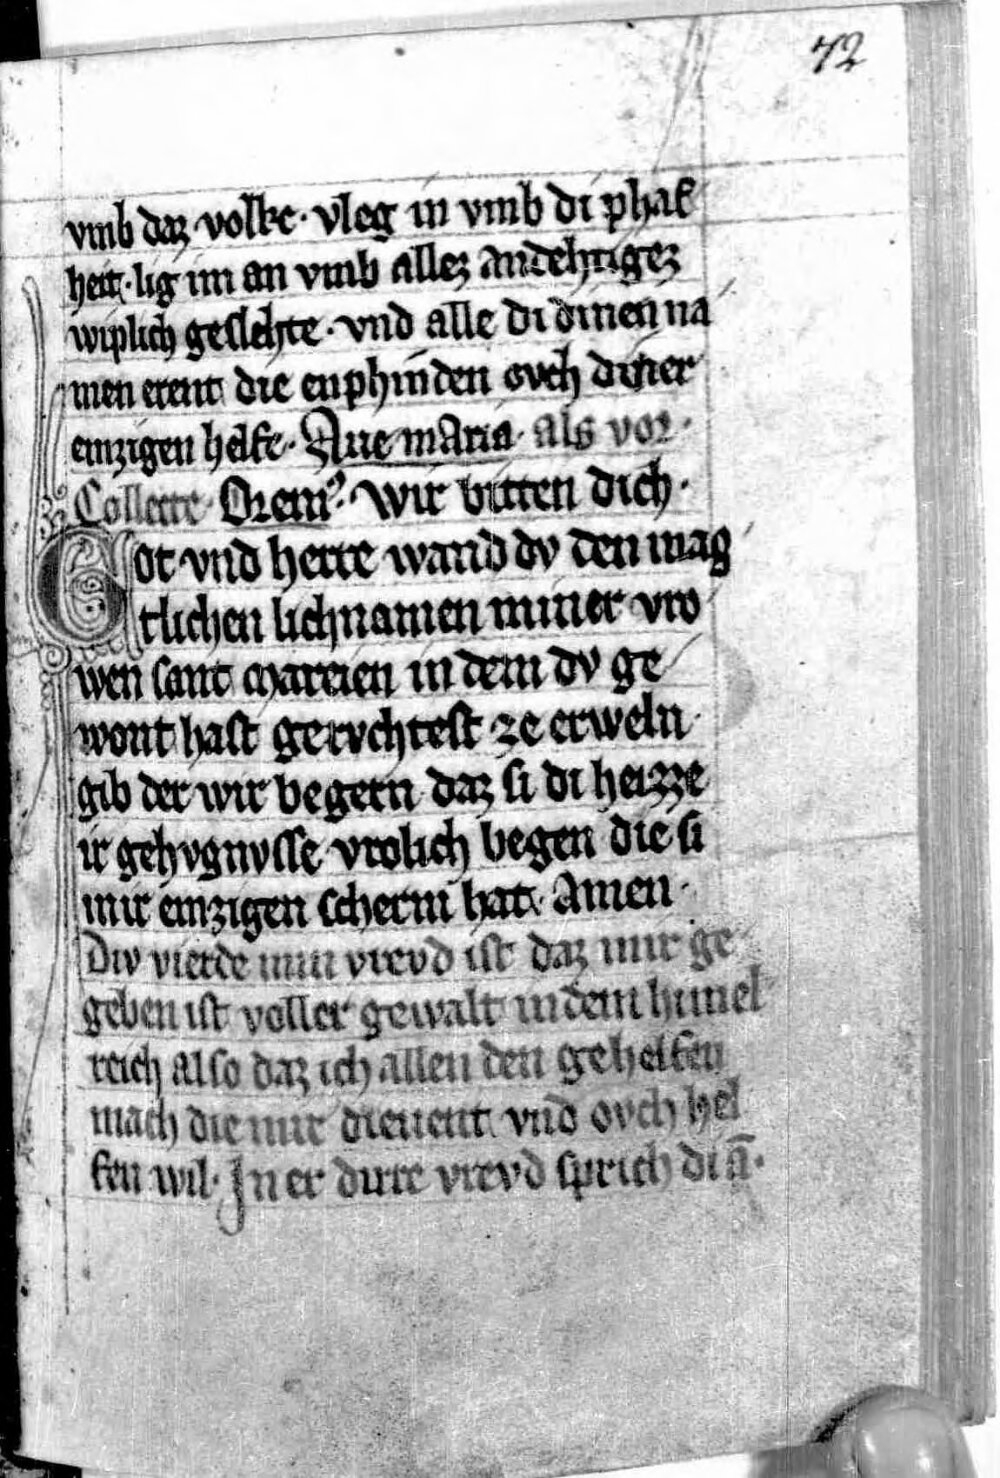 72
vmb daz volke · vleg in vmb di phaf
heit · lig im an vmb allez andehtigez
wiplich geslehte · vnd alle di dinen na
men erent die enphinden ovch diner
einzigen helfe · Aue maria · als vor ·
Collecte Oremꝰ · wir bitten dich ·
Got vnd herre wand dv den mag
tlichen lichnamen miner vro
wen sant mareien in dem dv ge
wont hast gervchtest ze erweln ·
gib der wir begern daz si di heizze
ir gehvgnvsse vrolich begen die si
mit einzigen scherm hat · Amen ·
Div vierde min vrevd ist daz mir ge
geben ist voller gewalt in dem himel
reich also daz ich allen den gehelfen
mach die mir dienent vnd ovch hel
fen wil · In er dirre vrevd sprich di ā ·